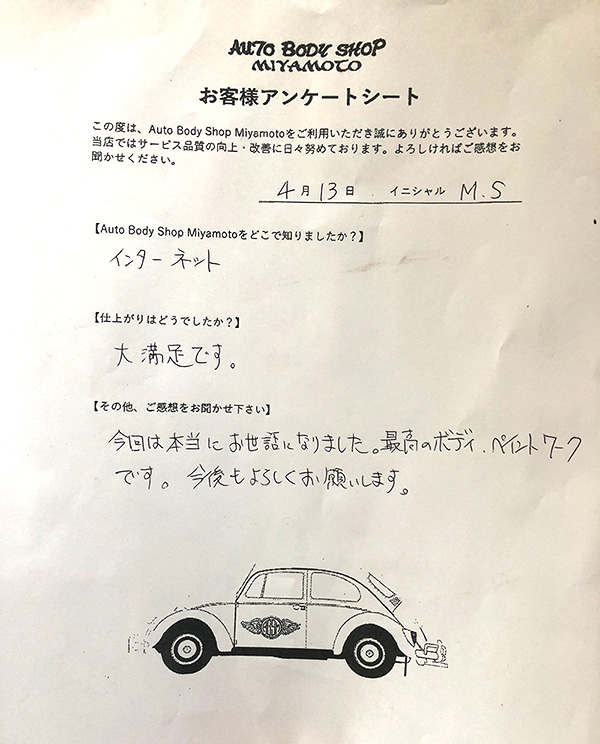 AUTO BODY SHOP
MIYAMOTO
お客様アンケートシート
この度は、Auto Body Shop Miyamotoをご利用いただき誠にありがとうございます。
当店ではサービス品質の向上・改善に日々努めております。よろしければご感想をお
聞かせください。
4月13日 イニシャル M.S
【Auto Body Shop Miyamotoをどこで知りましたか？】
インターネット
【仕上がりはどうでしたか？】
大満足です。
【その他、ご感想をお聞かせ下さい】
今回は本当にお世話になりました。最高のボディ、ペイントワーク
です。今後もよろしくお願いします。